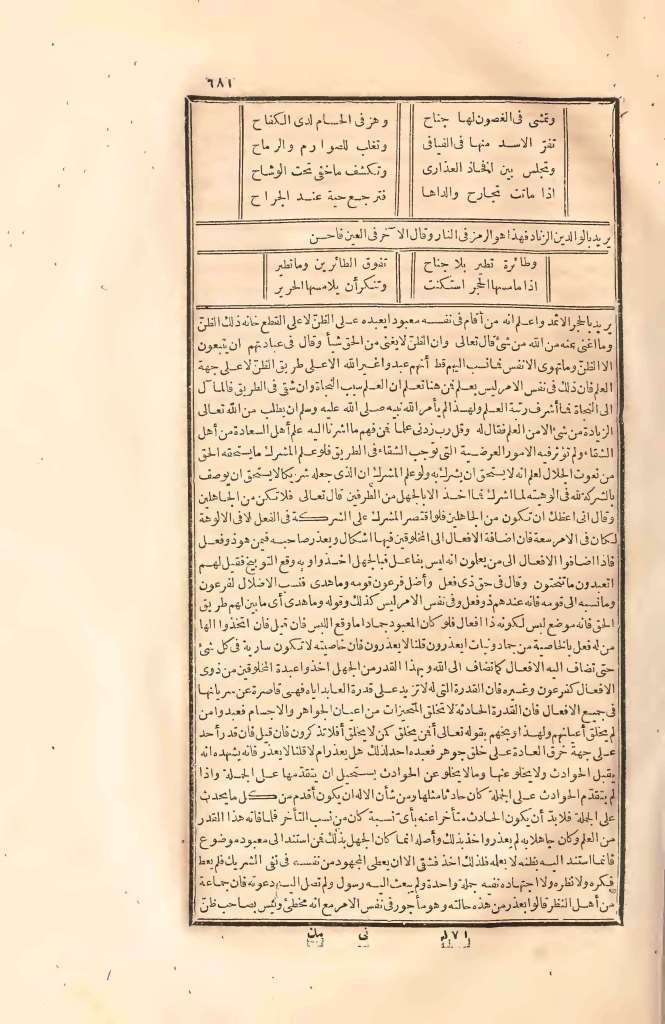 ٦٨١
وتمشى فى الغصون لها جناح وهز فى الحسام لدى الكفاح
تفر الاسد منها فى الفيافى وتغلب للصوارم والرماح
وتجلس بين افخاذ العذارى وتكشف ماخفى تحت الوشاح
اذا ماتت تجارح والداها فترجع حية عند الجراح
يريد بالوالدين الزناد فهذا هو الرمز فى النار وقال الآخر فى العين فاحسن
وطائرة تطير بلا جناح تفوق الطائرين وما تطير
اذا ما مسها الحجر استكنت وتنكر أن يلامسها الحرير
يريد بالحجر الاثمد واعلم انه من أقام فى نفسه معبودا يعبده على الظن لا على القطع خانه ذلك الظن
وما أغنى عنه من الله من شئ قال تعالى وان الظن لا يغنى من الحق شيأ وقال فى عبادتهم ان يتبعون
الا الظن وما تهوى الانفس فما نسب اليهم قط أنهم عبدوا غير الله الا على طريق الظن لا على جهة
العلم فان ذلك فى نفس الامر ليس بعلم فمن هنا تعلم ان العلم سبب النجاة وان شقى فى الطريق فالمآل
الى النجاة فما أشرف رتبة العلم ولهذا لم يأمر الله نبيه صلى الله عليه وسلم ان يطلب من الله تعالى
الزيادة من شئ الا من العلم فقال له وقل رب زدنى علما فمن فهم ما اشرنا اليه علم أهل السعادة من أهل
الشقاء ولم تؤثر فيه الامور العرضية التى توجب الشقاء فى الطريق فلو علم المشرك ما يستحقه الحق
من نعوت الجلال لعلم انه لا يستحق ان يشرك به ولو علم المشرك ان الذى جعله شريكا لا يستحق ان يوصف
بالشركة لله فى الوهيته لما اشرك فما اخذ الا بالجهل من الطرفين قال تعالى فلا تكن من الجاهلين
وقال انى اعظك ان تكون من الجاهلين فلو اقتصر المشرك على الشركة فى الفعل لا فى الالوهة
لكان فى الامر سعة فان اضافة الافعال الى المخلوقين فيها اشكال ويعذر صاحبه فيمن هو ذو فعل
فاذا اضافوا الافعال الى من يعلمون انه ليس بفاعل فبالجهل اخذوا وبه وقع التوبيخ فقيل لهم
أتعبدون ما تنحتون وقال فى حق ذى فعل وأضل فرعون قومه وما هدى فنسب الاضلال لفرعون
وما نسبه الى قومه فانه عندهم ذو فعل وفى نفس الامر ليس كذلك وقوله وما هدى أى ما بين لهم طريق
الحق فانه موضع لبس لكونه ذا افعال فلو كان المعبود جمادا ما وقع اللبس فان قيل فان اتخذوا الها
من له فعل بالخاصية من جماد ونبات ايعذرون قلنا لا يعذرون فان خاصيته لا تكون سارية فى كل شئ
حتى تضاف اليه الافعال كما تضاف الى الله وبهذا القدر من الجهل اخذوا عبدة المخلوقين من ذوى
الافعال كفرعون وغيره فان القدرة التى له لا تزيد على قدرة العابد اياه فهى قاصرة عن سريانها
فى جميع الافعال فان القدرة الحادثة لا تخلق المتحيزات من اعيان الجواهر والاجسام فعبدوا من
لم يخلق أعيانهم ولهذا وبخهم بقوله تعالى أفمن يخلق كمن لا يخلق أفلا تذكرون فان قيل فان قدر أحد
على جهة خرق العادة على خلق جوهر فعبده احد لذلك هل يعذر ام لا قلنا لا يعذر فانه يشهده انه
يقبل الحوادث ولا يخلو عنها وما لا يخلو عن الحوادث يستحيل ان يتقدمها على الجملة واذا
لم يتقدم الحوادث على الجملة كان حادثا مثلها ومن شأن الاله ان يكون أقدم من كل ما يحدث
على الجملة فلا بد أن يكون الحادث متأخرا عنه بأى نسبة كان من نسب التأخر فلما فاته هذا القدر
من العلم وكان جاهلا به لم يعذر واخذ بذلك وأصله انما كان الجهل بذلك فمن استند الى معبود موضوع
فانما استند اليه بظنه لا بعلمه فلذلك اخذ فشقى الا ان يعطى المجهود من نفسه فى نفى الشريك فلم يعط
فكره ولا نظره ولا اجتهاده نفسه جملة واحدة ولم يبعث اليه رسول ولم تصل اليه دعوته فان جماعة
من أهل النظر قالوا بعذر من هذه حالته وهو مأجور فى نفس الامر مع انه مخطئ وليس بصاحب ظن
١٧١ نى